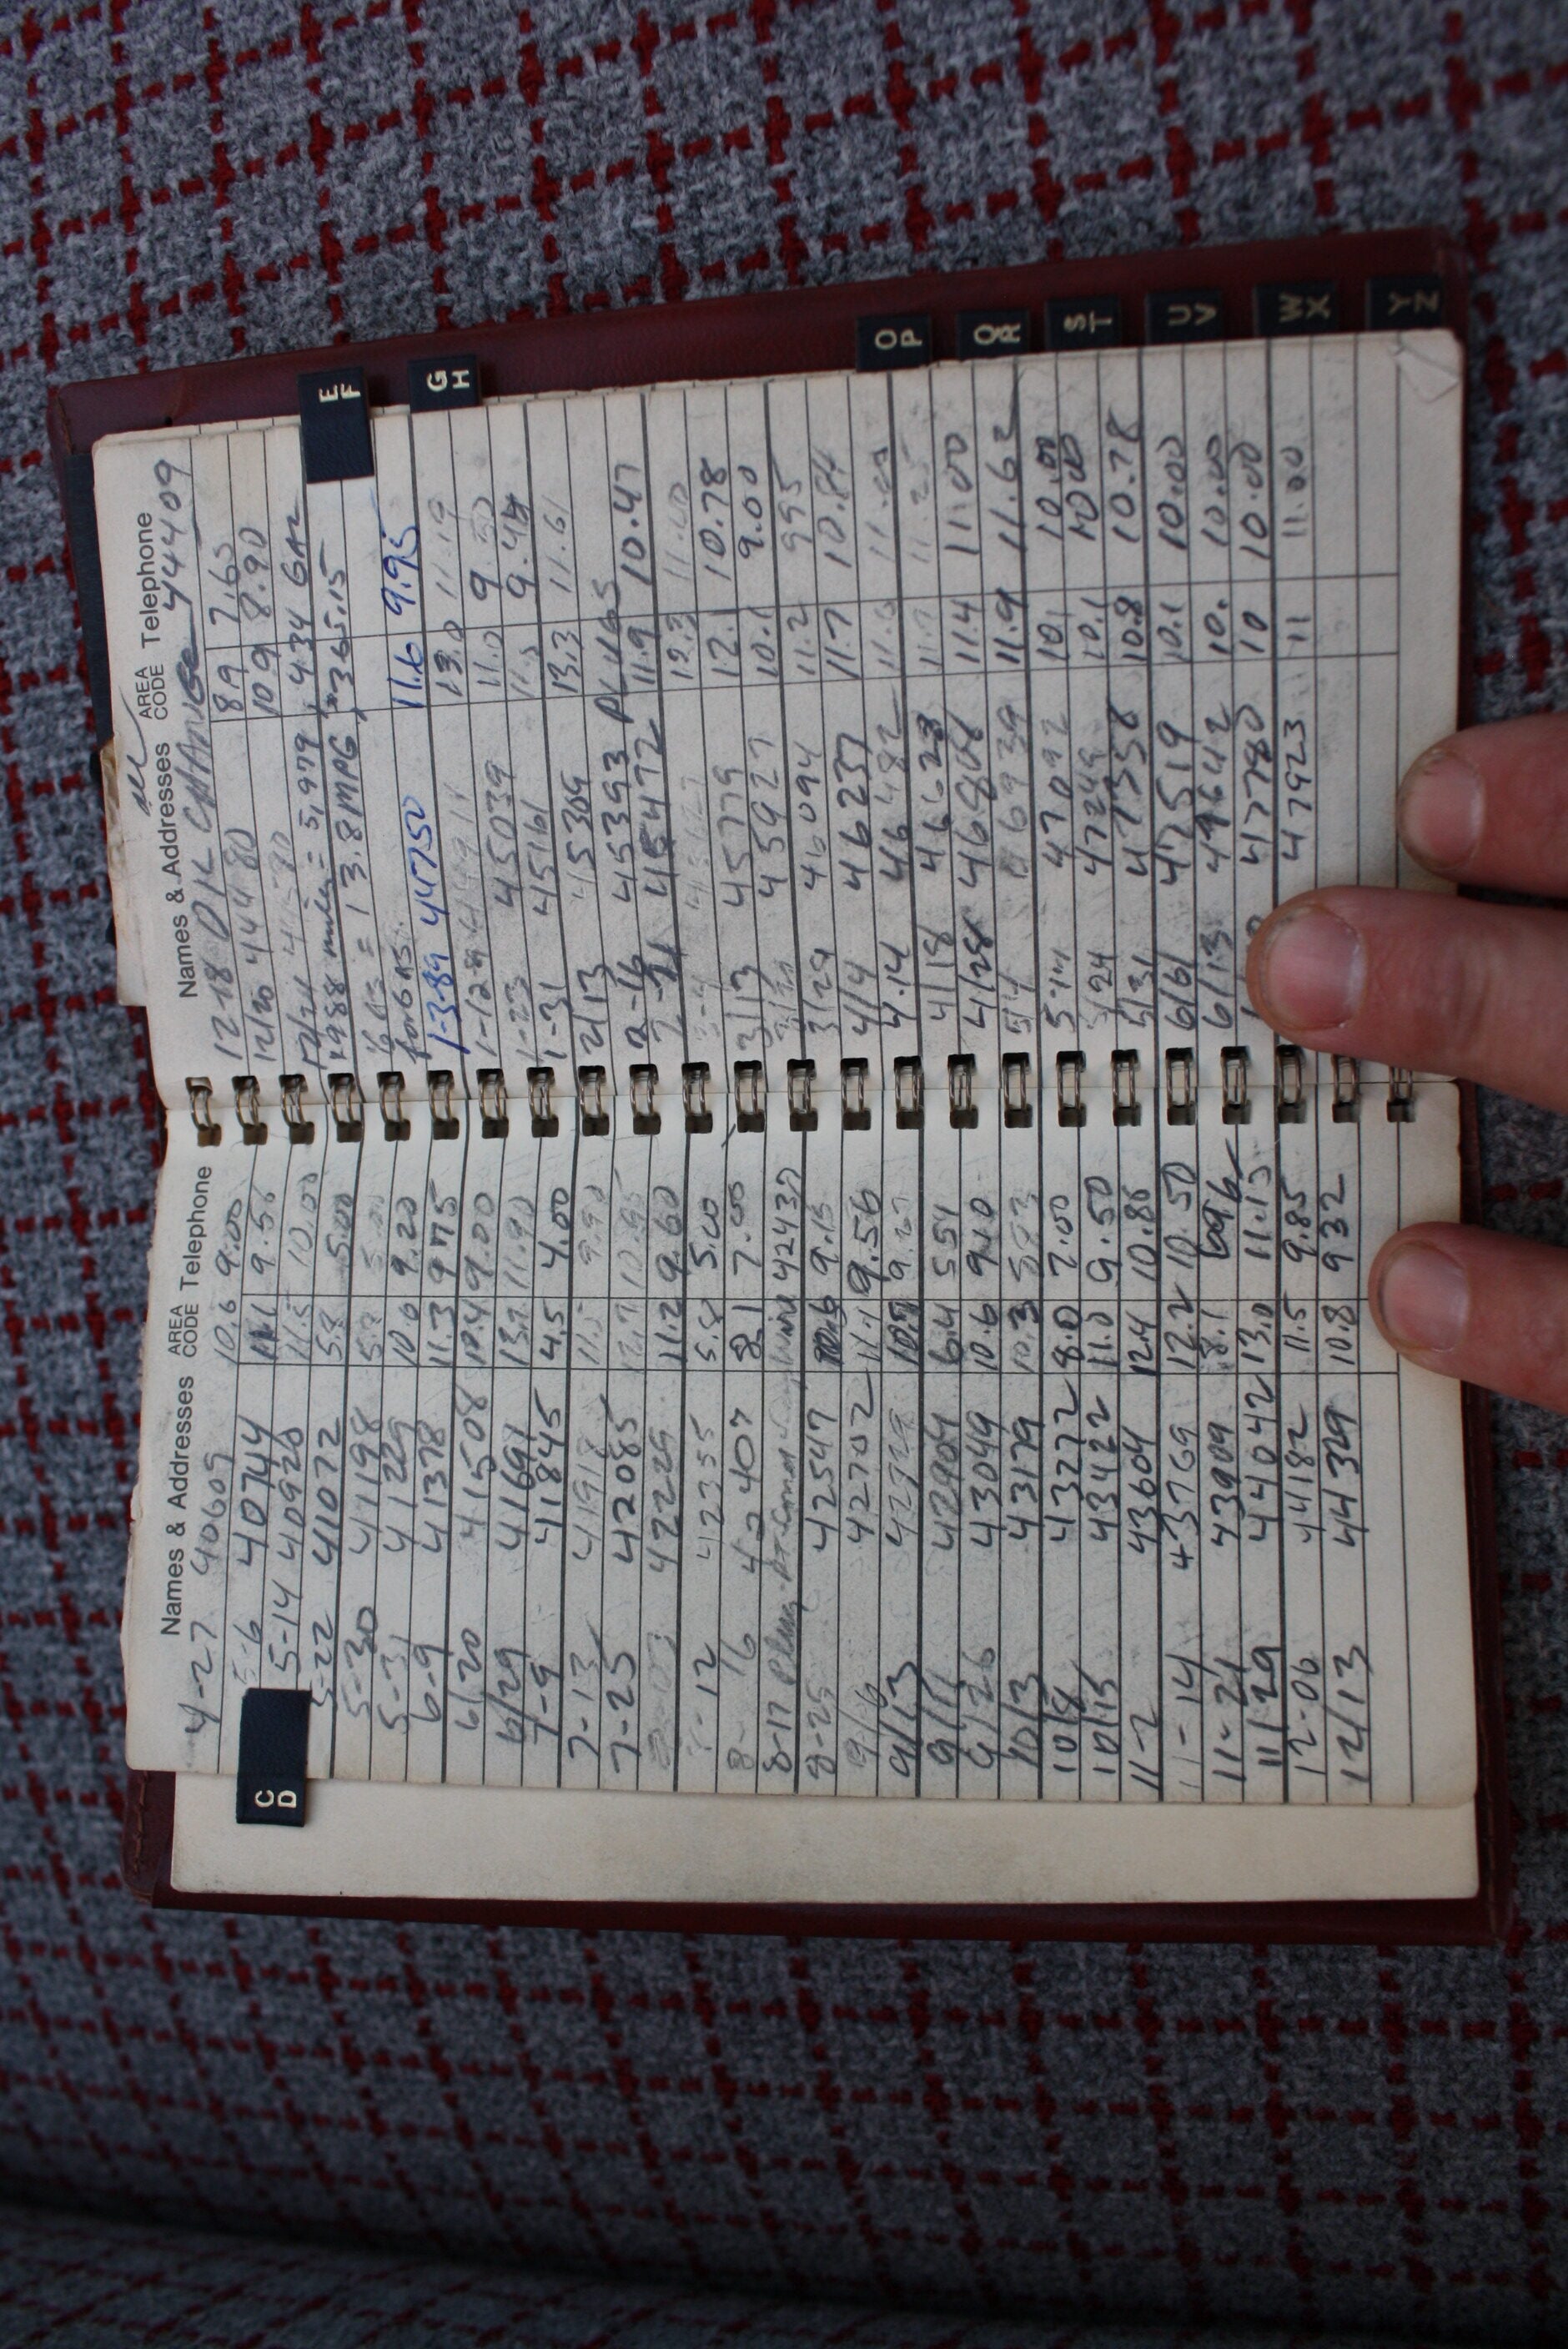 C
D
Names & Addresses AREA CODE Telephone
4-27 40609 10.6 9.00
5-6 40744 11.1 9.56
5-14 40920 11.5 10.00
5-22 41072 5.8 5.00
5-30 41198 5.8 5.00
5-31 41229 10.6 9.20
6-9 41378 11.3 9.75
6/20 41508 10.4 9.00
6/29 41691 13.7 11.90
7-9 41845 4.5 4.00
7-13 41918 11.5 9.90
7-25 42085 12.7 10.95
42229 11.2 9.60
12 42355 5.8 5.00
8-16 42407 8.1 7.00
8-17 Plug- Wire 42437
8-25 42547 10.6 9.15
9/6 42702 11.1 9.56
9/13 9.27
9/17 42904 6.4 5.54
9/26 43049 10.6 9.10
10/3 43179 10.3
10/8 43272 8.0 7.00
10/15 43422 11.0 9.50
11-2 43604 12.4 10.86
11-14 43769 12.2 10.50
11-21 43909 8.1 6.96
11/29 44042 13.0 11.13
12-06 44182 11.5 9.85
12/13 44329 10.8 932
Names & Addresses AREA CODE Telephone
12-18 OIL CHANGE 44409
12/20 44480 8.9 7.65
10.9 8.90
12/24 x 988 miles = 5,979, 434 GAL
= 13.8 MPG, $365.15
for GAS
1-3-89 44750 11.6 9.95
1-12-89 13.0 11.19
1-23 45039 11.0 9.50
1-31 45161 11.0 9.44
2/13 45309 13.3 11.61
2-16 45393
2-21 45472 11.9 10.47
12.5 11.00
3/13 45779 12.1 10.78
45927 10.1 9.00
3/29 46094 11.2 995
4/4 46237 11.7 10.84
4.14 46482
4/18 46623 11.25
4/28 46808 11.4 11.00
5/4 46939 11.9 11.62
5-14 47092 10.1 10.00
5/24 47249 10.1 10.00
5/31 47358 10.8 10.78
6/6 47519 10.1 10.00
6/13 49642 10. 10.00
47780 10 10.00
47923 11 11.00
E
F
G
H
O
P
Q
R
S
T
U
V
W
X
Y
Z